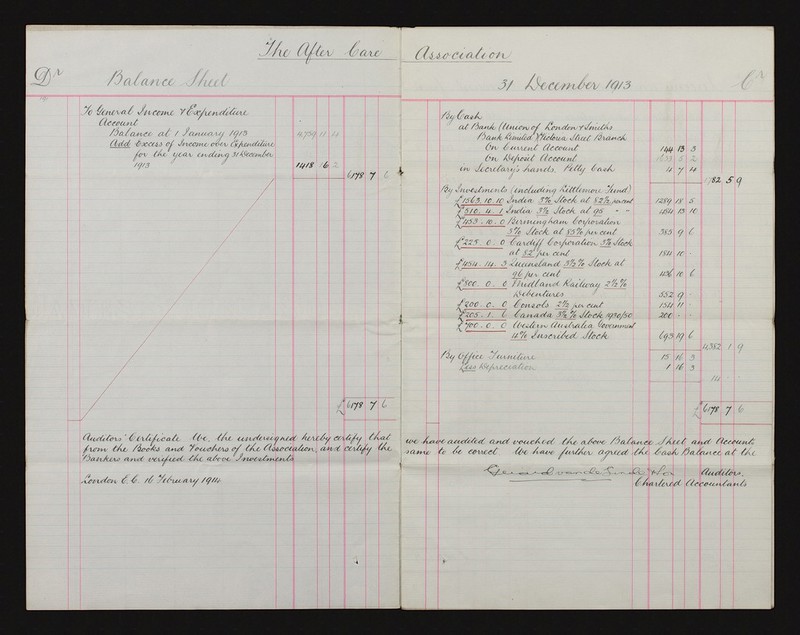 The After Care Association
Dr Balance Sheet 31 December 1913 Cr
To General Income & Expenditure
Account
Balance at 1 January 1913 4759 11 4
Add Excess of Income over Expenditure
for the year ending 31 December
1913 1418 16 2
6178 7 6
£6178 7 6
By Cash
at Bank (Union of London & Smiths
Bank Limited) Victoria Street Branch
On Current Account 144 13 3
On Deposit Account 1633 5 2
in Secretary's hands, Petty Cash 4 7 4
1782 5 9
By Investments (including Littlemore Fund)
£1563.10.10 India 3% Stock at 82½ per cent 1289 18 5
£510.4.1 India 3½% Stock at 95 " " 484 13 10
£453.10.0 Birmingham Corporation
3% Stock at 85% per cent 385 9 6
£225.0.0 Cardiff Corporation 3% Stock
at 82 per cent 184 10 -
£454.14.3 Queensland 3½% Stock at
96 per cent 436 10 6
£800.0.0 Midland Railway 2½%
Debentures 552 9 -
£200.0.0 Consols 2½ per cent 154 11 -
£205.1.6 Canada 3½% Stock 1930/50 200 - -
£700.0.0 Western Australia Government
4% Inscribed Stock 693 19 6
4382 1 9
By Office Furniture 15 16 3
Less Depreciation 1 16 3
14 - -
£6178 7 6
Auditors' Certificate We, the undersigned hereby certify that we have audited and vouched the above Balance Sheet and Accounts
from the Books and Vouchers of the Association, and certify the same to be correct. We have further agreed the Cash Balance at the
Bankers and verified the above Investments
Auditors.
London E.C. 16 February 1914
Chartered Accountants